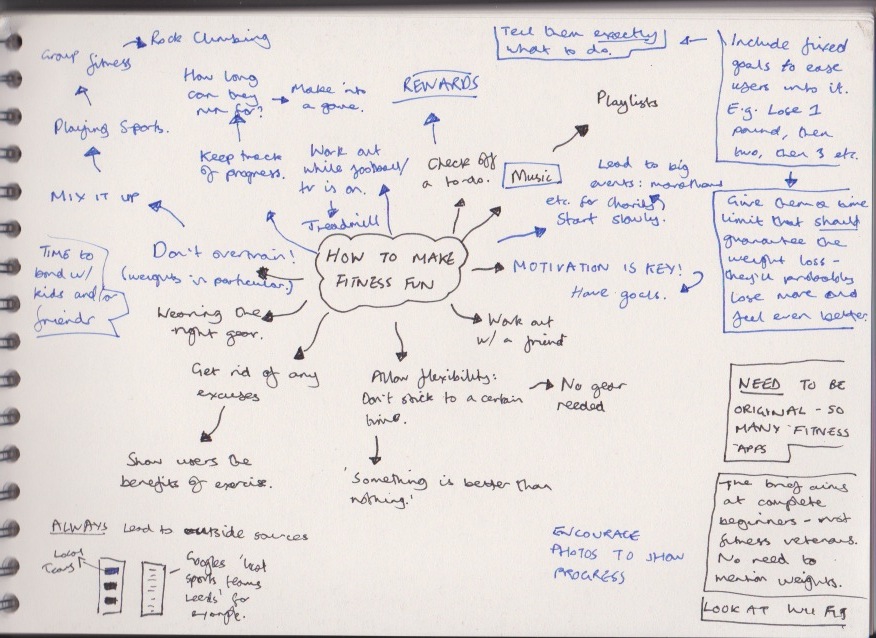 Group fitness
Rock Climbing
Tell them exactly
what to do.
Include fixed
goals to ease
users into it.
E.g. Lose 1
pound, then
two, then 3 etc.
How long
can they
run for?
Make into
a game.
REWARDS
Playlists
Playing Sports.
Keep track
of progress.
Work out
while football/
tv is on.
Treadmill
Check off
a to-do.
Music
Lead to big
events: marathons
etc. for charity.
Start slowly.
Give them a time
limit that should
guarantee the
weight loss -
they'll probably
lose more and
feel even better.
MIX IT UP
TIME to
bond w/
kids and/or
friends
Don't overtrain!
(weights in particular.)
HOW TO MAKE
FITNESS FUN
MOTIVATION IS KEY!
Have goals.
Wearing the
right gear.
Work out
w/ a friend
Get rid of any
excuses
Allow flexibility:
Don't stick to a certain
time.
No gear
needed
NEED TO BE
ORIGINAL - SO
MANY FITNESS
APPS
Show users the
benefits of exercise.
'Something is better than
nothing.'
The brief aims
at complete
beginners - not
fitness veterans.
No need to
mention weights.
ALWAYS Lead to outside sources
Local
Teams
Googles 'local
sports teams
Leeds' for
example.
ENCOURAGE
PHOTOS TO SHOW
PROGRESS
LOOK AT WII FIT